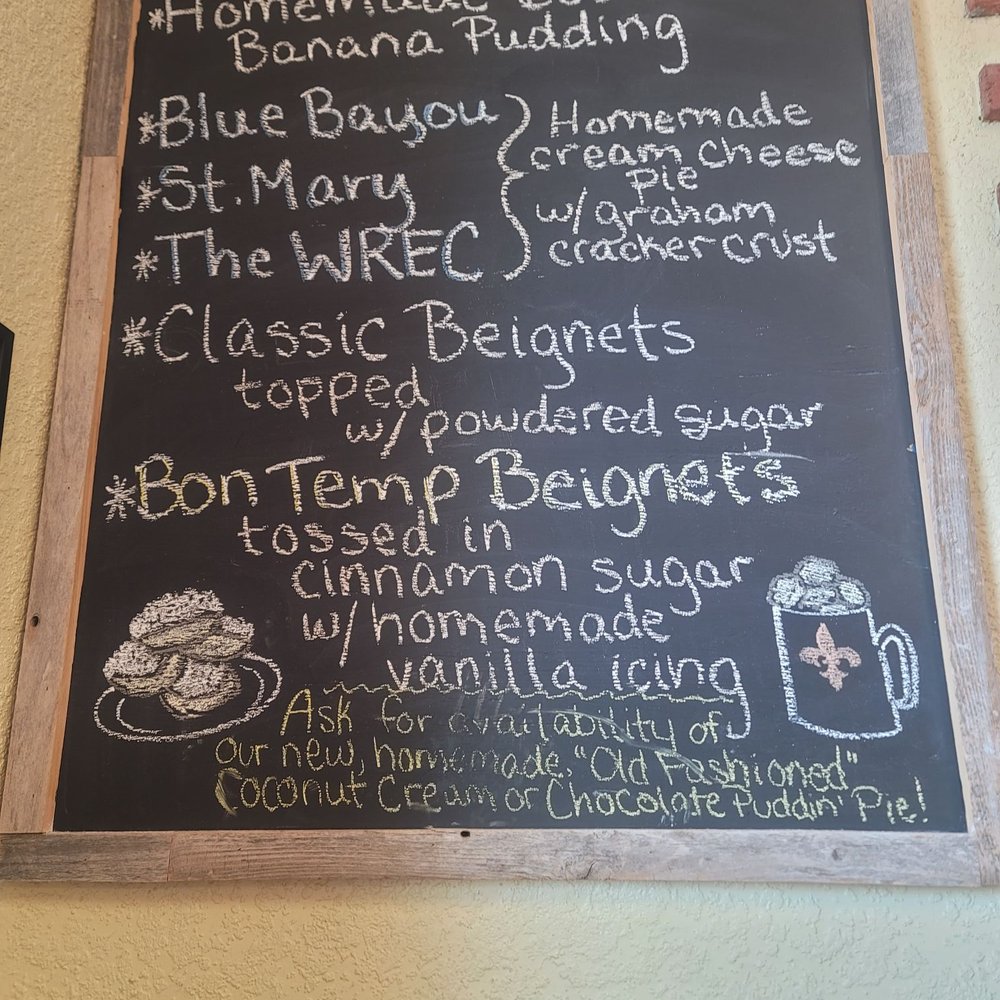 *Homemade
Banana Pudding
*Blue Bayou
*St. Mary
*The WREC
Homemade
cream cheese
pie
w/graham
cracker crust
*Classic Beignets
topped
w/powdered sugar
*Bon Temp Beignets
tossed in
cinnamon sugar
w/homemade
vanilla icing
Ask for availability of
our new, homemade, "Old Fashioned"
Coconut Cream or Chocolate Puddin' Pie!